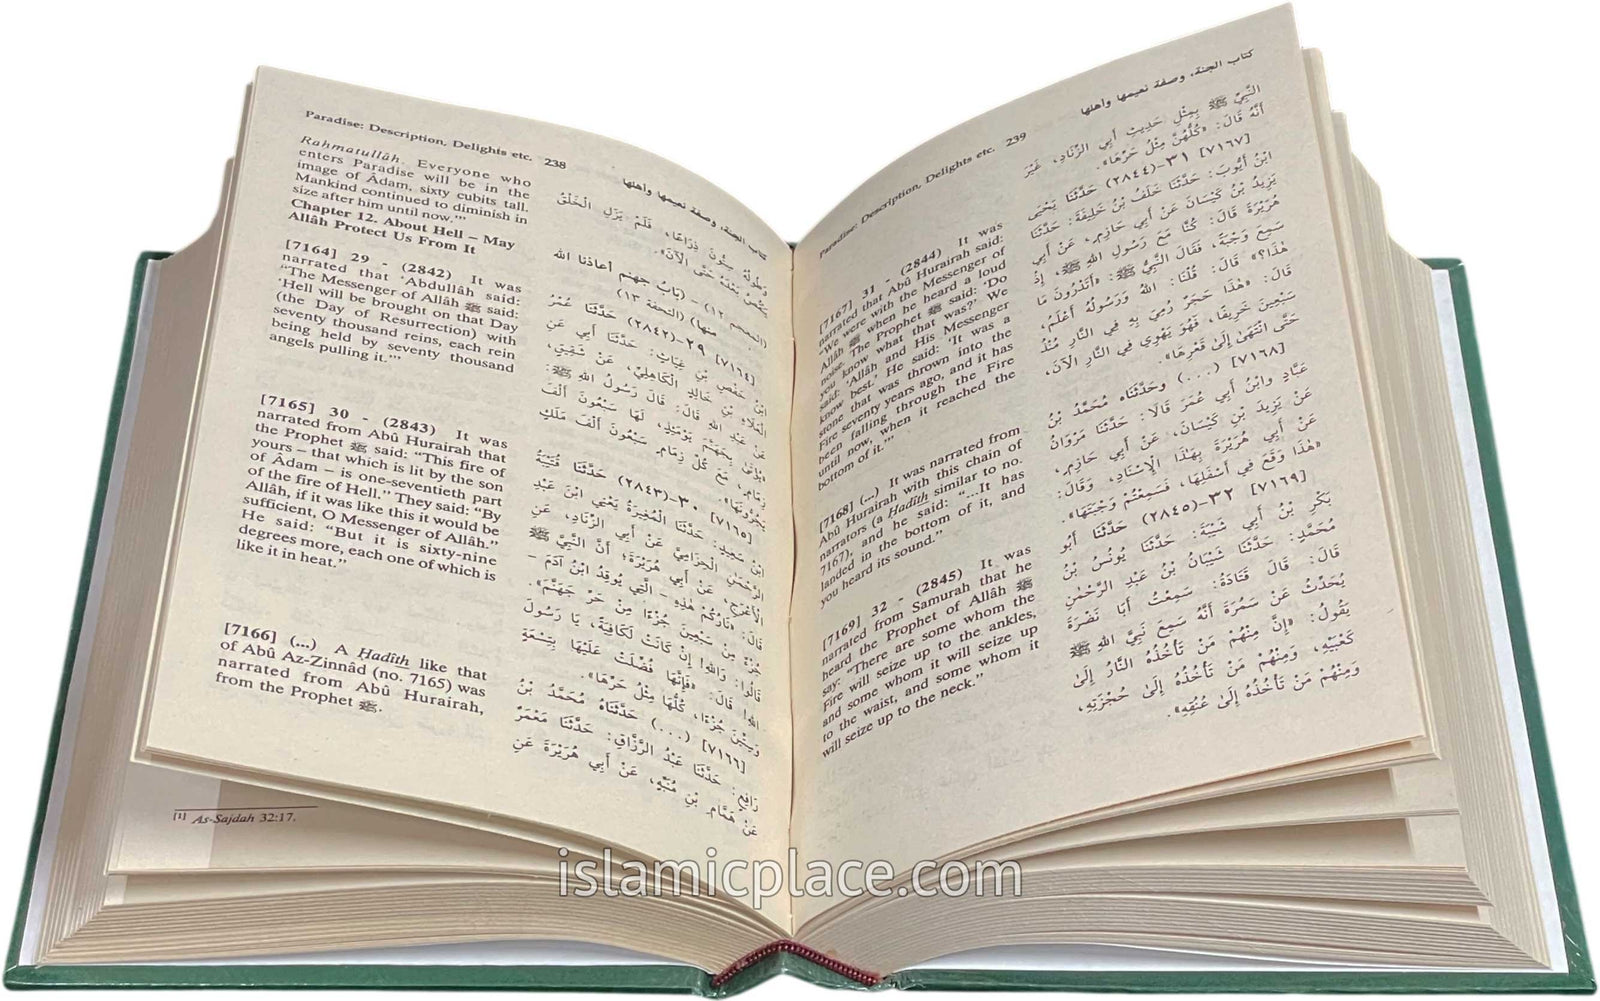 Paradise: Description, Delights etc. 238
كتاب الجنة، وصفة نعيمها وأهلها
Rahmatullâh. Everyone who
enters Paradise will be in the
image of Âdam, sixty cubits tall.
Mankind continued to diminish in
size after him until now.'"
Chapter 12. About Hell – May
Allâh Protect Us From It
[7164] 29 - (2842) It was
narrated that 'Abdullâh said:
"The Messenger of Allâh ﷺ said:
'Hell will be brought on that Day
(the Day of Resurrection) with
seventy thousand reins, each rein
being held by seventy thousand
angels pulling it.'"
[7165] 30 - (2843) It was
narrated from Abû Hurairah that
the Prophet ﷺ said: "This fire of
yours – that which is lit by the son
of Âdam – is one-seventieth part
of the fire of Hell." They said: "By
Allâh, if it was like this it would be
sufficient, O Messenger of Allâh."
He said: "But it is sixty-nine
degrees more, each one of which is
like it in heat."
[7166] (...) A Hadîth like that
of Abû Az-Zinnâd (no. 7165) was
narrated from Abû Hurairah,
from the Prophet ﷺ.
وَطُولُهُ سِتُّونَ ذِرَاعًا، فَلَمْ يَزَلِ الْخَلْقُ
يَنْقُصُ بَعْدَهُ حَتَّى الْآنَ».
(المعجم ١٢) - (بَابُ جهنم أعاذنا الله
منها) (التحفة ١٣)
[٧١٦٤] ٢٩-(٢٨٤٢) حَدَّثَنَا عُمَرُ
ابْنُ حَفْصِ بْنِ غِيَاثٍ: حَدَّثَنَا أَبِي عَنِ
الْعَلَاءِ بْنِ خَالِدٍ الْكَاهِلِيِّ، عَنْ شَقِيقٍ،
عَنْ عَبْدِ اللهِ قَالَ: قَالَ رَسُولُ اللهِ ﷺ:
«يُؤْتَىٰ بِجَهَنَّمَ يَوْمَئِذٍ، لَهَا سَبْعُونَ أَلْفَ
زِمَامٍ، مَعَ كُلِّ زِمَامٍ سَبْعُونَ أَلْفَ مَلَكٍ
يَجُرُّونَهَا».
[٧١٦٥] ٣٠-(٢٨٤٣) حَدَّثَنَا قُتَيْبَةُ
ابْنُ سَعِيدٍ: حَدَّثَنَا الْمُغِيرَةُ يَعْنِي ابْنَ عَبْدِ
الرَّحْمٰنِ الْحِزَامِيَّ عَنْ أَبِي الزِّنَادِ، عَنِ
الْأَعْرَجِ، عَنْ أَبِي هُرَيْرَةَ؛ أَنَّ النَّبِيَّ ﷺ
قَالَ: «نَارُكُمْ هٰذِهِ - الَّتِي يُوقِدُ ابْنُ آدَمَ -
جُزْءٌ مِنْ سَبْعِينَ جُزْءًا مِنْ حَرِّ جَهَنَّمَ».
قَالُوا: وَاللهِ! إِنْ كَانَتْ لَكَافِيَةً، يَا رَسُولَ
اللهِ! قَالَ: «فَإِنَّهَا فُضِّلَتْ عَلَيْهَا بِتِسْعَةٍ
وَسِتِّينَ جُزْءًا، كُلُّهَا مِثْلُ حَرِّهَا».
[٧١٦٦] (...) حَدَّثَنَاهُ مُحَمَّدُ بْنُ
رَافِعٍ: حَدَّثَنَا عَبْدُ الرَّزَّاقِ: حَدَّثَنَا مَعْمَرٌ
عَنْ هَمَّامِ بْنِ مُنَبِّهٍ، عَنْ أَبِي هُرَيْرَةَ عَنِ
[1] As-Sajdah 32:17.
Paradise: Description, Delights etc. 239
كتاب الجنة، وصفة نعيمها وأهلها
[7167] 31 - (2844) It was
narrated that Abû Hurairah said:
"We were with the Messenger of
Allâh ﷺ when he heard a loud
noise. The Prophet ﷺ said: 'Do
you know what that was?' We
said: 'Allâh and His Messenger
know best.' He said: 'It was a
stone that was thrown into the
Fire seventy years ago, and it has
been falling through the Fire
until now, when it reached the
bottom of it.'"
[7168] (...) It was narrated from
Abû Hurairah with this chain of
narrators (a Hadîth similar to no.
7167), and he said: "...It has
landed in the bottom of it, and
you heard its sound."
[7169] 32 - (2845) It was
narrated from Samurah that he
heard the Prophet of Allâh ﷺ
say: "There are some whom the
Fire will seize up to the ankles,
and some whom it will seize up
to the waist, and some whom it
will seize up to the neck."
النَّبِيِّ ﷺ بِمِثْلِ حَدِيثِ أَبِي الزِّنَادِ، غَيْرَ
أَنَّهُ قَالَ: «كُلُّهُنَّ مِثْلُ حَرِّهَا».
[٧١٦٧] ٣١-(٢٨٤٤) حَدَّثَنَا يَحْيَى
ابْنُ أَيُّوبَ: حَدَّثَنَا خَلَفُ بْنُ خَلِيفَةَ: حَدَّثَنَا
يَزِيدُ بْنُ كَيْسَانَ عَنْ أَبِي حَازِمٍ، عَنْ أَبِي
هُرَيْرَةَ قَالَ: كُنَّا مَعَ رَسُولِ اللهِ ﷺ، إِذْ
سَمِعَ وَجْبَةً، فَقَالَ النَّبِيُّ ﷺ: «أَتَدْرُونَ مَا
هٰذَا؟» قَالَ: قُلْنَا: اللهُ وَرَسُولُهُ أَعْلَمُ،
قَالَ: «هٰذَا حَجَرٌ رُمِيَ بِهِ فِي النَّارِ مُنْذُ
سَبْعِينَ خَرِيفًا، فَهُوَ يَهْوِي فِي النَّارِ الْآنَ،
حَتَّى انْتَهَىٰ إِلَىٰ قَعْرِهَا».
[٧١٦٨] (...) وحَدَّثَنَاه مُحَمَّدُ بْنُ
عَبَّادٍ وابْنُ أَبِي عُمَرَ قَالَا: حَدَّثَنَا مَرْوَانُ
عَنْ يَزِيدَ بْنِ كَيْسَانَ، عَنْ أَبِي حَازِمٍ،
عَنْ أَبِي هُرَيْرَةَ بِهٰذَا الْإِسْنَادِ، وَقَالَ:
«هٰذَا وَقَعَ فِي أَسْفَلِهَا، فَسَمِعْتُمْ وَجْبَتَهَا».
[٧١٦٩] ٣٢-(٢٨٤٥) حَدَّثَنَا أَبُو
بَكْرِ بْنُ أَبِي شَيْبَةَ: حَدَّثَنَا يُونُسُ بْنُ
مُحَمَّدٍ: حَدَّثَنَا شَيْبَانُ بْنُ عَبْدِ الرَّحْمٰنِ
قَالَ: قَالَ قَتَادَةُ: سَمِعْتُ أَبَا نَضْرَةَ
يُحَدِّثُ عَنْ سَمُرَةَ أَنَّهُ سَمِعَ نَبِيَّ اللهِ ﷺ
يَقُولُ: «إِنَّ مِنْهُمْ مَنْ تَأْخُذُهُ النَّارُ إِلَىٰ
كَعْبَيْهِ، وَمِنْهُمْ مَنْ تَأْخُذُهُ إِلَىٰ حُجْزَتِهِ،
وَمِنْهُمْ مَنْ تَأْخُذُهُ إِلَىٰ عُنُقِهِ».
islamicplace.com